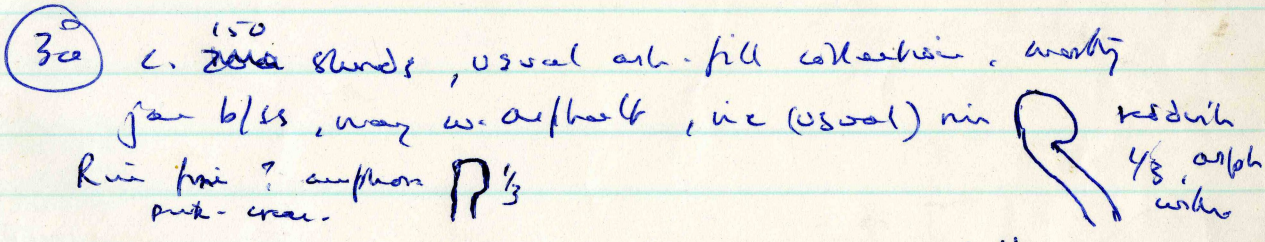 3a c. 150 sherds, usual ash-fill collection, mostly
jar b/ss, many w. asphalt, inc (usual) rim reddish
1/3, asph
Rim from ? amphora 1/3
pink-cream.